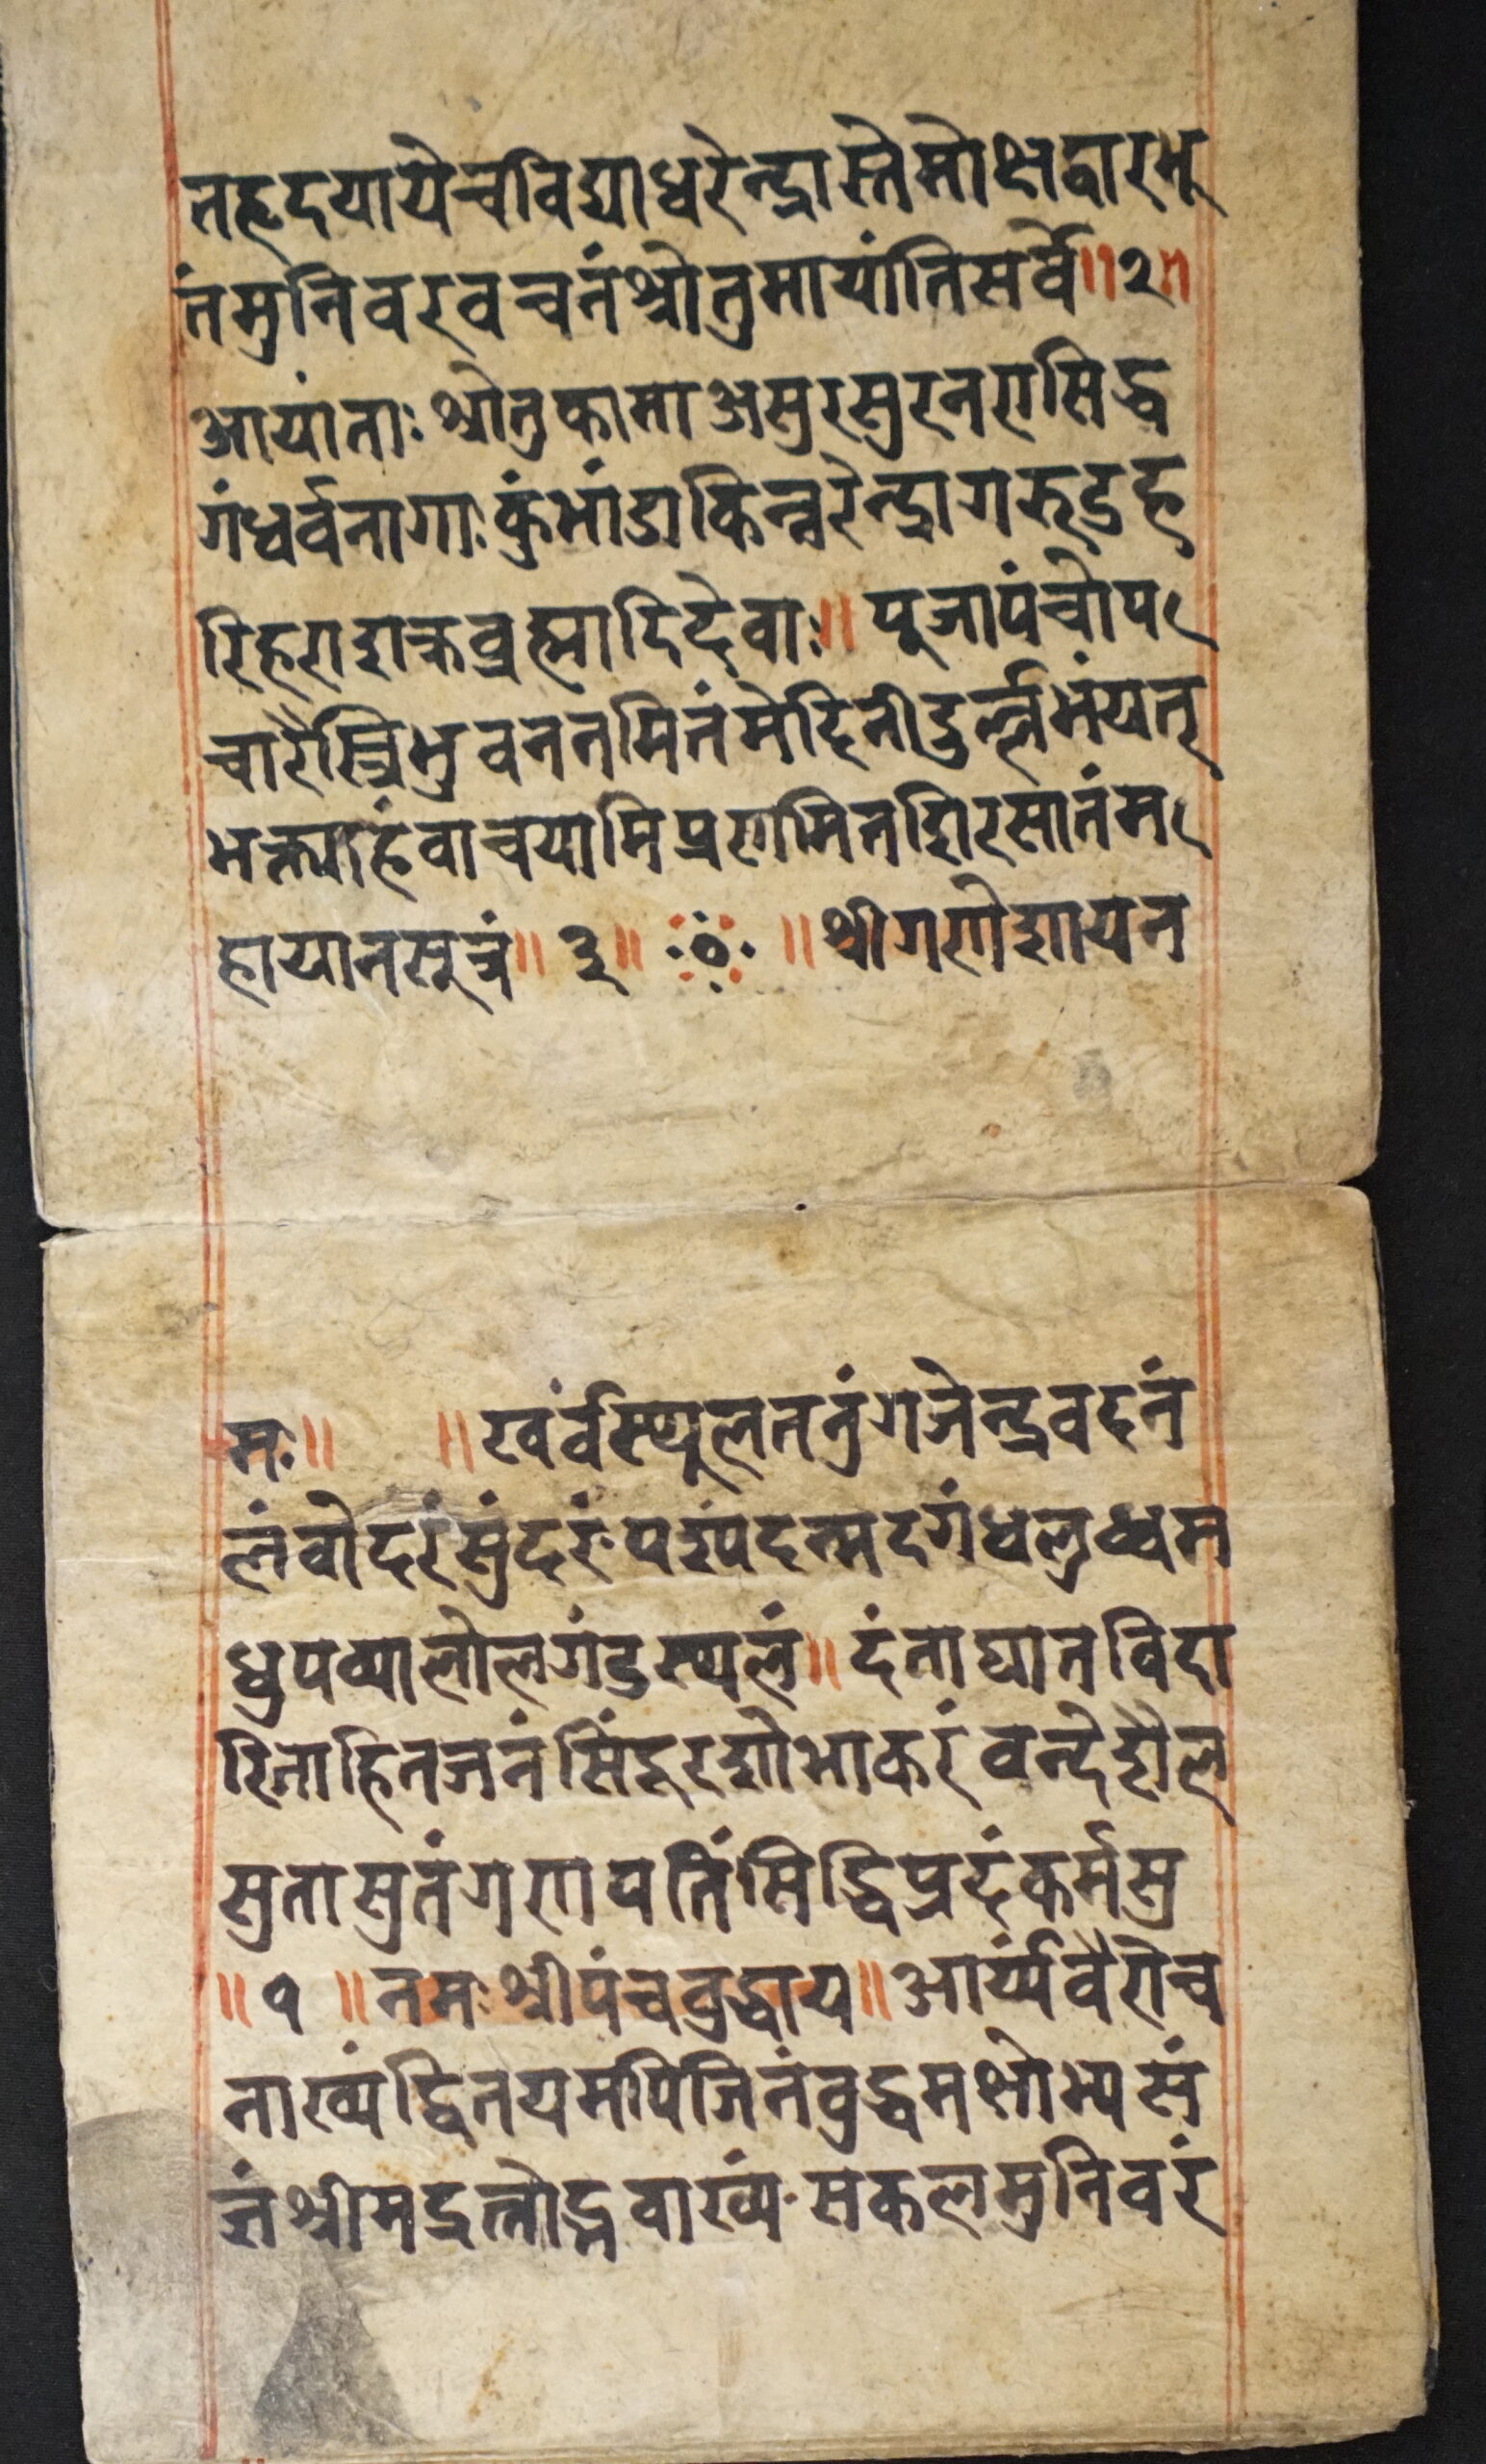 तहृदयायेचविद्याधरेन्द्रास्तेमोक्षद्वारभू
तंमुनिवरवचनंश्रोतुमायांतिसर्वे॥२॥
आयांताःश्रोतुकामाअसुरसुरनरासिद्ध
गंधर्वनागाःकुंभांडाकिन्नरेन्द्रागरुडह
रिहराशक्रब्रह्मादिदेवाः॥पूजापंचोप
चारैस्त्रिभुवननमितंमेदिनीदुर्ल्लभंयत्
भक्त्याहंवाचयामिप्रणमितशिरसातंम
हायानसूत्रं॥३॥ ॥श्रीगणेशायन
मः॥ ॥खर्वंस्थूलतनुंगजेन्द्रवदनं
लंवोदरंसुंदरंपरंपदन्मदगंधलुब्धम
धुपव्यालोलगंडस्थलं॥दंताघातविदा
रिताहितजनंसिंदूरशोभाकरंवन्देशैल
सुतासुतंगणपतिंसिद्धिप्रदंकर्मसु
॥१॥नमःश्रीपंचवुद्धाय॥आर्य्यंवैरोच
नाख्यंद्वितयमपिजिनंवुद्धमक्षोभ्यसं
ज्ञंश्रीमद्रत्नोद्भवाख्यंसकलमुनिवरं